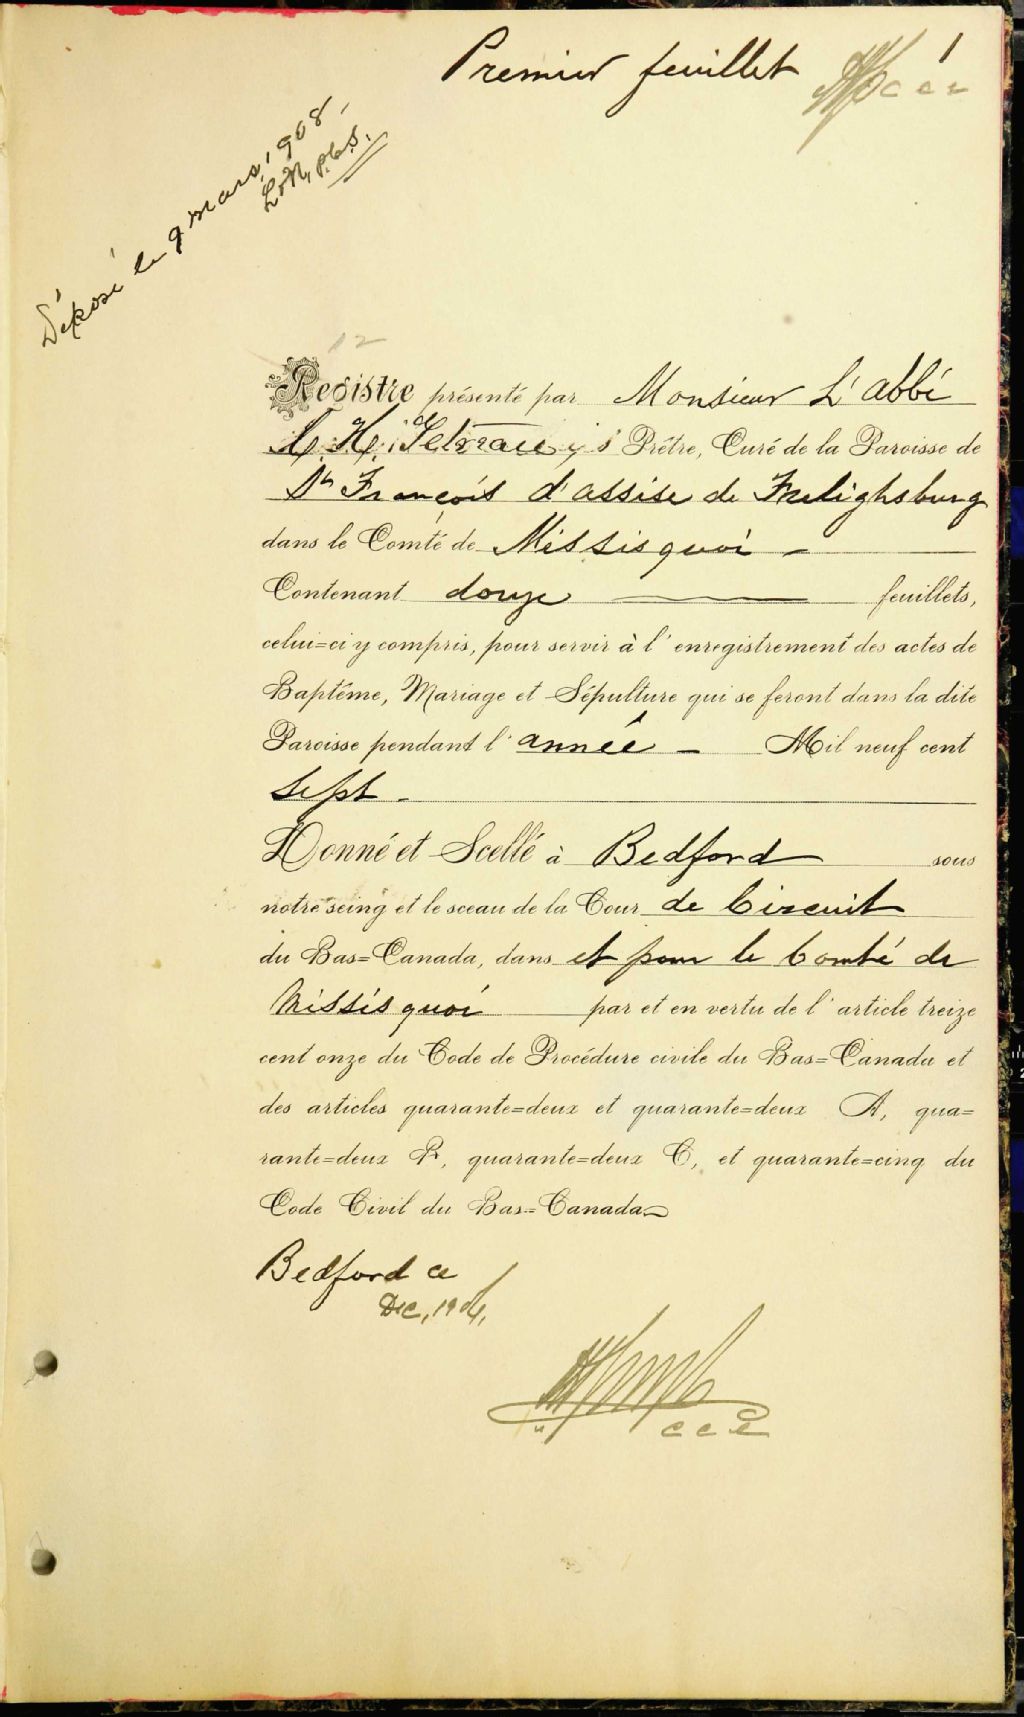 Premier feuillet
1
Déposé le 9 mars, 1908,
12
Registre présenté par Monsieur L'abbé
Prêtre, Curé de la Paroisse de
St François d'assise de Frelighsburg
dans le Comté de Missisquoi -
Contenant douze feuillets,
celui=ci y compris, pour servir à l'enregistrement des actes de
Baptême, Mariage et Sépulture qui se feront dans la dite
Paroisse pendant l'année - Mil neuf cent
Sept -
Donné et Scellé à Bedford sous
notre seing et le sceau de la Cour de Circuit
du Bas=Canada, dans et pour le Comté de
Missisquoi par et en vertu de l'article treize
cent onze du Code de Procédure civile du Bas=Canada et
des articles quarante=deux et quarante=deux A, qua=
rante=deux B, quarante=deux C, et quarante=cinq du
Code Civil du Bas=Canada
Bedford ce
Dec, 1906,
c c c